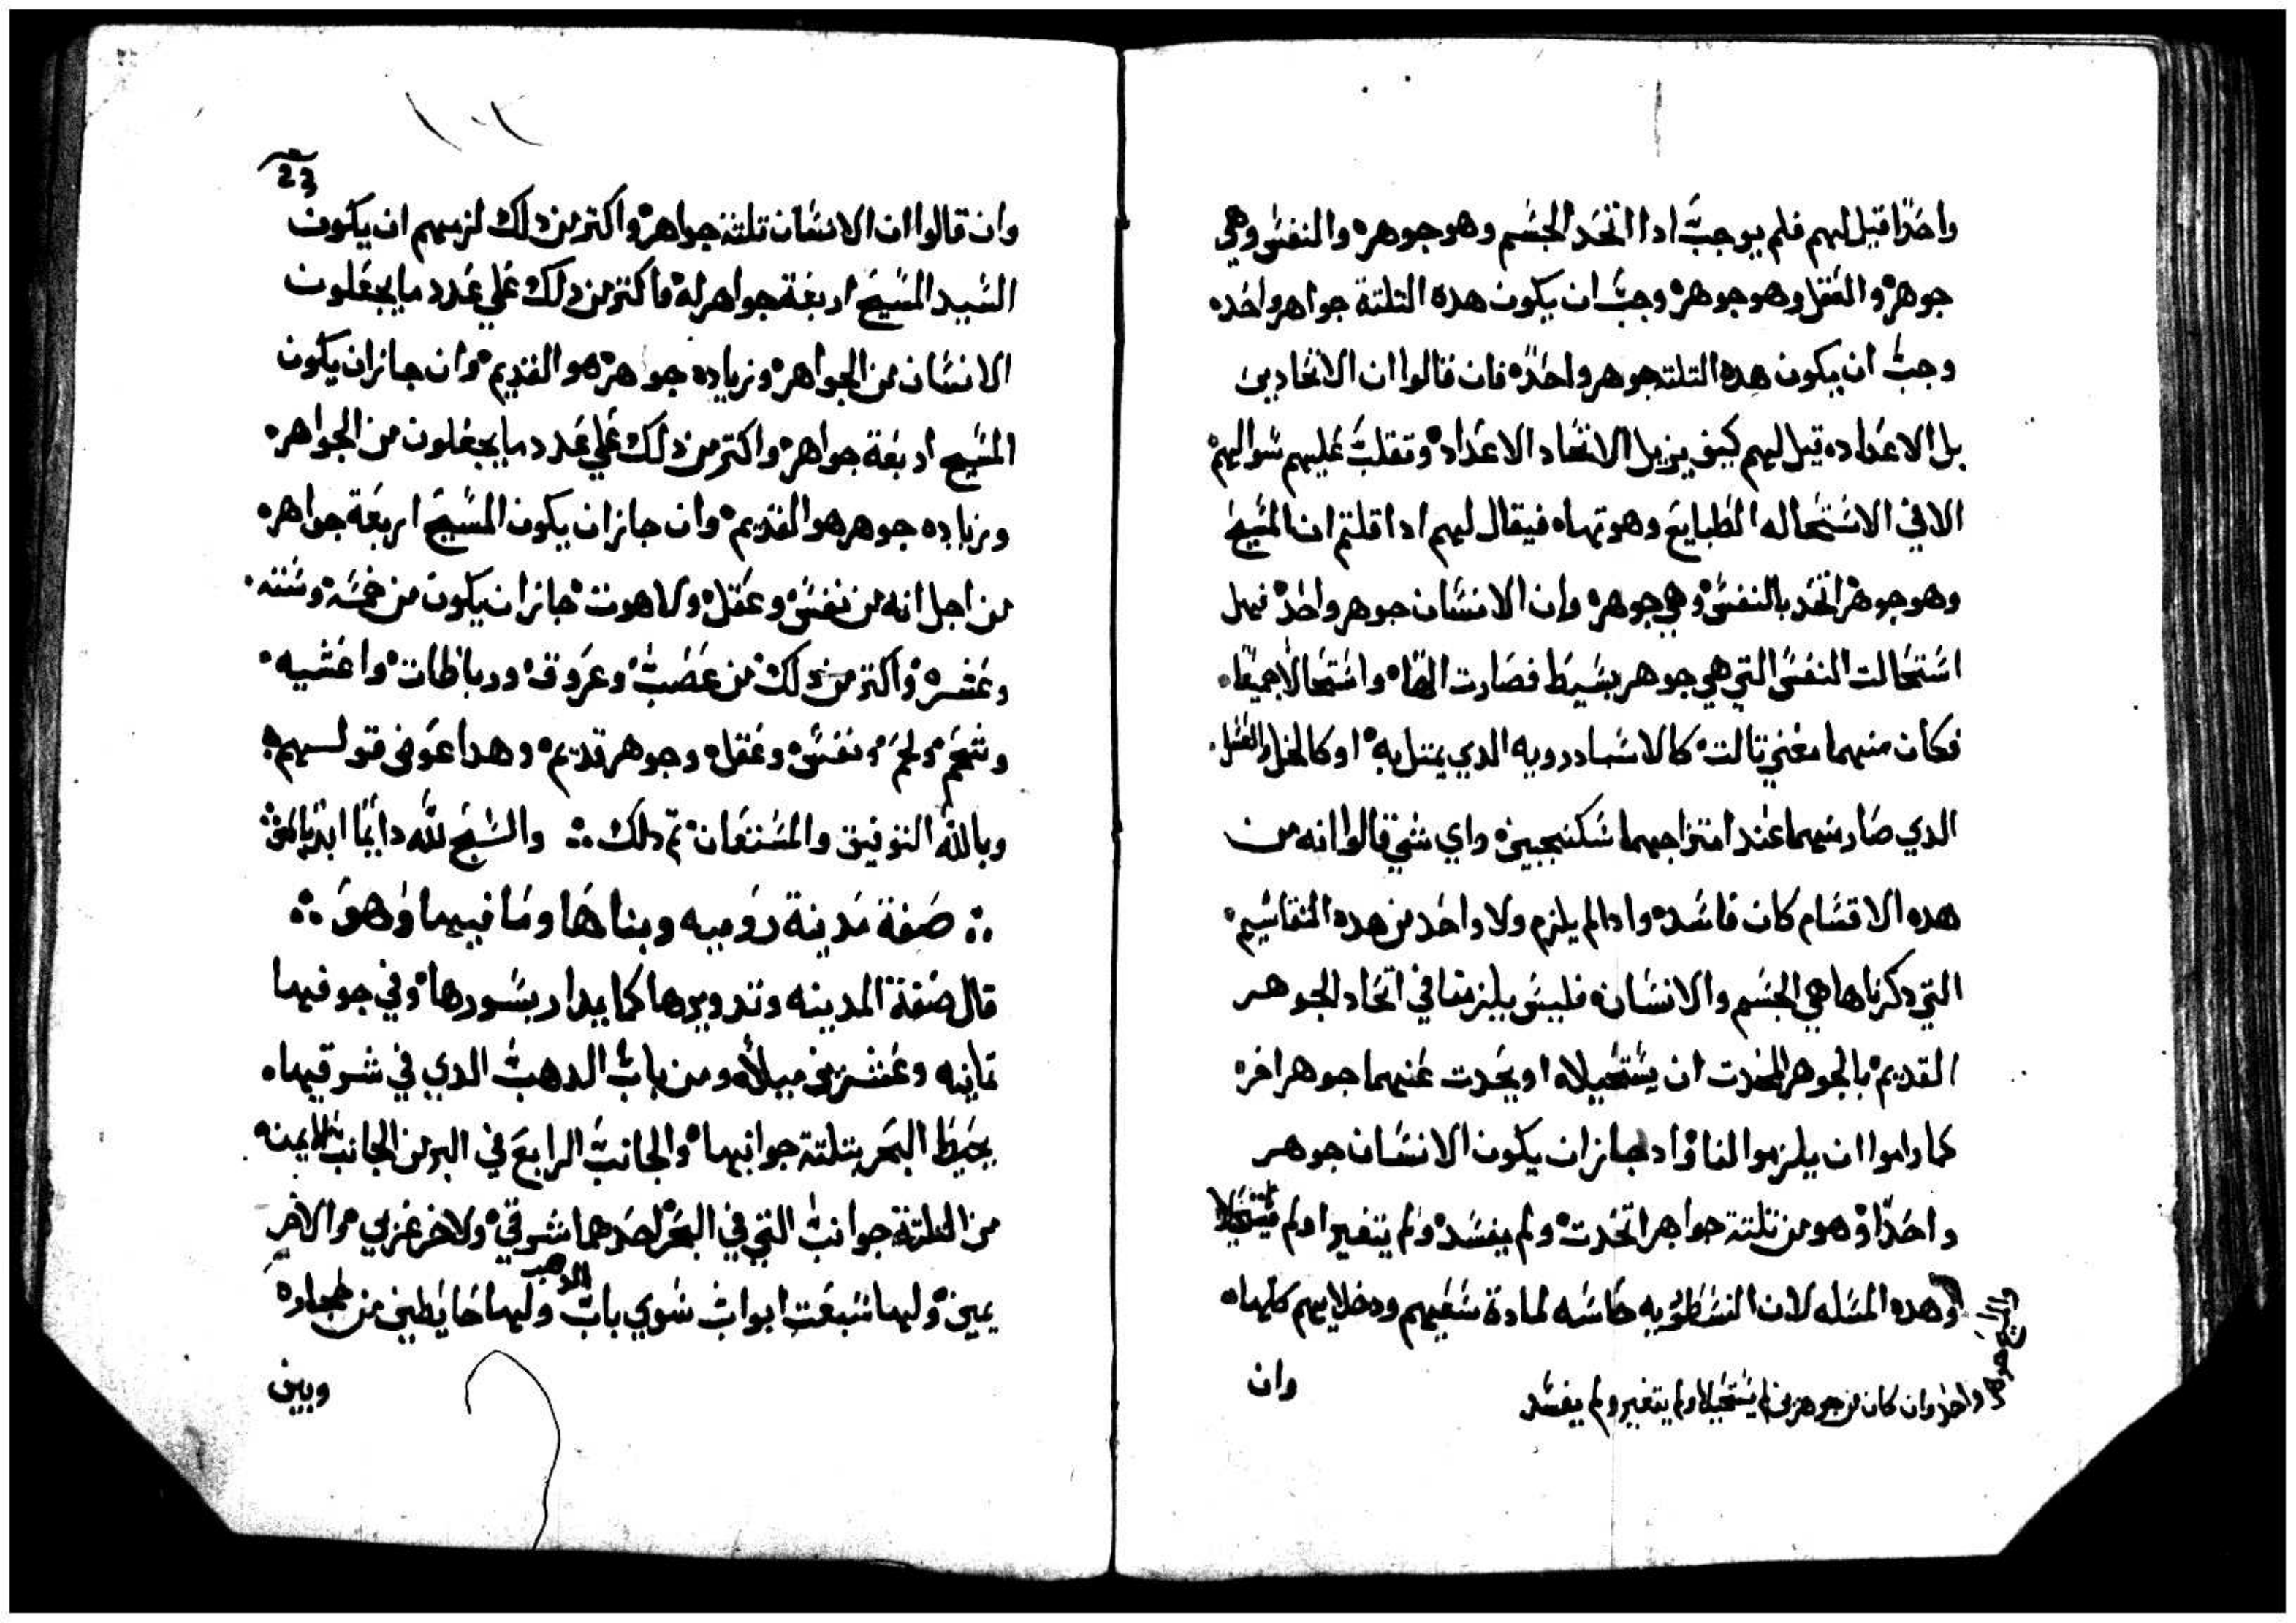 واحدًا قيل لهم فلم يوجب ادا اتحد الجسم وهو جوهره والنفس وهي
جوهر والعقل وهو جوهر وجب ان يكون هده التلتة جواهر واحده
وجب ان يكون هده التلته جوهر واحدًه فان قالوا ان الاتحاد يبن
بل الاعداده قيل لهم كيف يزيل الاتحاد الاعداد وتقلب عليهم سوالهم
الا في الاستحاله الطبايع وهوتها ه فيقال لهم ادا قلتم ان المسيح
وهو جوهر اتحد بالنفس وهي جوهره وان الانسان جوهر واحد فهل
استحالت النفس التي هي جوهر بسيط فصارت الهًا ه واستحالا جميعًا ه
فكان منهما معني تالت كالاسادرويه الدي يمتل به او كالخل والعسل
الدي صار منهما عند امتزاجهما سكنجبين واي شي قالوا انه من
هده الاقسام كان فاسده وادا لم يلزم ولا واحد من هده التقاسيم
التي دكرناها هي الجسم والانسان فليس يلزمنا في اتحاد الجوهر
القديم بالجوهر المحدت ان يستحيلا ه او يحدت عنهما جوهر اخره
كما راموا ان يلزموا لنا واد جاز ان يكون الانسان جوهر
واحدًا وهو من تلتة جواهر اتحدت ولم يفسد ولم يتغير اولم يستحيلا
وهده المسله لان النسطوريه حاسه لمادة شغبهم ودخلايهم كلها ه
واحد وان كان من جوهرين لم يستحيلا ولم يتغير ولم يفسد
وان
23
وان قالوا ان الانسان تلتة جواهر واكتر من دلك لزمهم ان يكون
السيد المسيح اربعة جواهر له فاكتر من دلك علي عدد ما يجعلون
الانسان من الجواهر وزياده جوهر هو القديم وان جاز ان يكون
المسيح اربعة جواهر واكتر من دلك علي عدد ما يجعلون من الجواهر
وزياده جوهر هو القديم وان جاز ان يكون المسيح اربعة جواهر
من اجل انه من نفس وعقل ولاهوت جاز ان يكون من خمسة وستة
وعشره واكتر من دلك من عصب وعروق ورباطات واغشيه
وشحم ولحم ونفس وعقل وجوهر قديم وهدا عوض قولهم
وبالله التوفيق والمستعان تم دلك والسبح لله دايمًا ابديًا
صفة مدينة روميه وبناها وما فيها وهو
قال صفة المدينه وتدويرها كما يدار بسورها وفي جوفها
تمانيه وعشرين ميلًا ومن باب الدهب الدي في شرقيها ه
يحيط البحر بتلتة جوانبها والجانب الرابع في البر من الجانب الايمنه
من التلتة جوانب التي في البحر احدهما شرقي ولاخر غربي والاخر
يمين ولها سبعت ابواب سوي باب الدهب ولها حايطين من حجاره
وبين